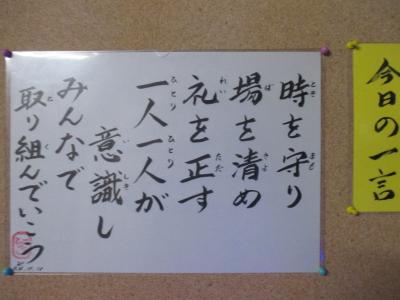 今日の一言
時を守り
場を清め
礼を正す
一人一人が
意識し
みんなで
取り組んでいこう